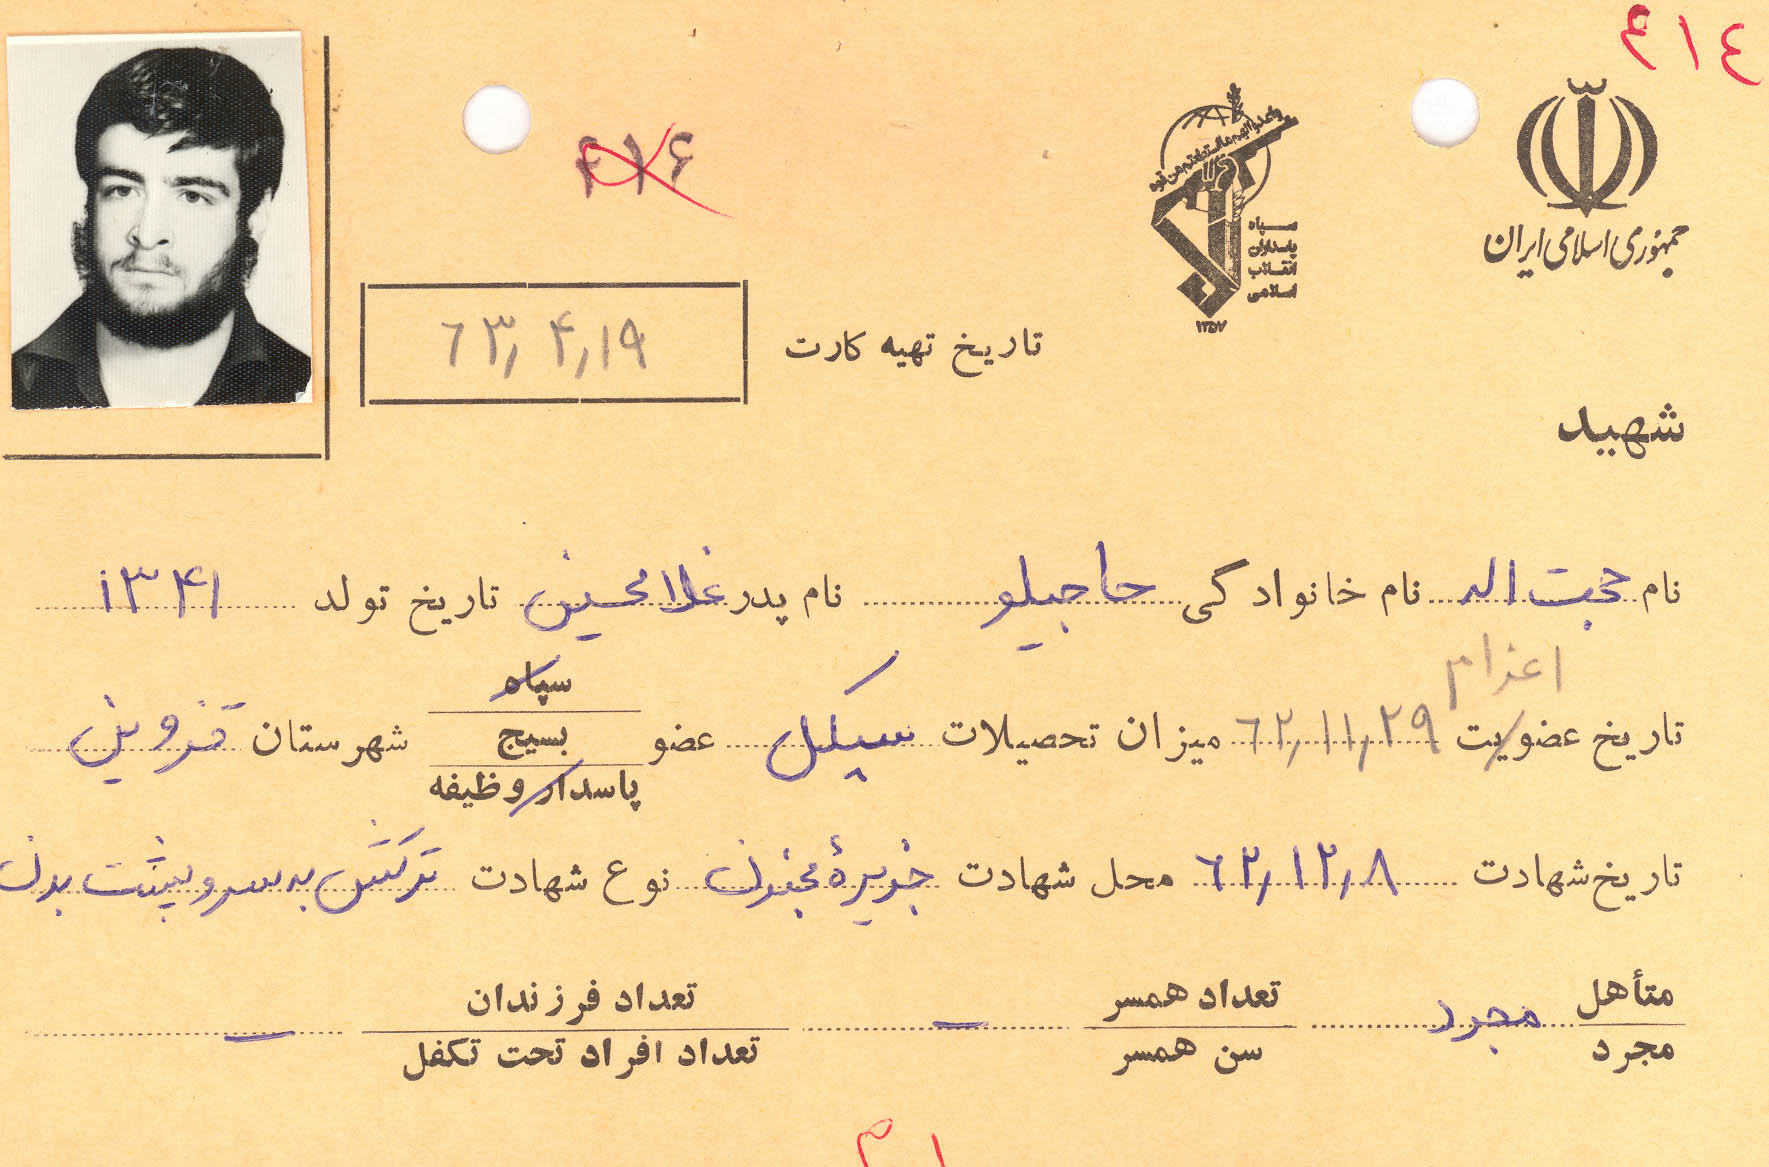 ۶۱۴
۴۱۶
جمهوری اسلامی ایران
واعدوا لهم ما استطعتم من قوة
سپاه
پاسداران
انقلاب
اسلامی
۱۳۵۷
تاریخ تهیه کارت ۶۳/۴/۱۹
شهید
نام حجت اله نام خانوادگی حاجیلو نام پدر غلامحسین تاریخ تولد ۱۳۴۱
اعزام
تاریخ عضویت ۶۲/۱۱/۲۹ میزان تحصیلات سیکل عضو سپاه بسیج پاسدار وظیفه شهرستان قزوین
تاریخ شهادت ۶۲/۱۲/۸ محل شهادت جزیرهٔ مجنون نوع شهادت ترکش به سر و پشت بدن
متأهل مجرد مجرد تعداد همسر سن همسر — تعداد فرزندان تعداد افراد تحت تکفل —